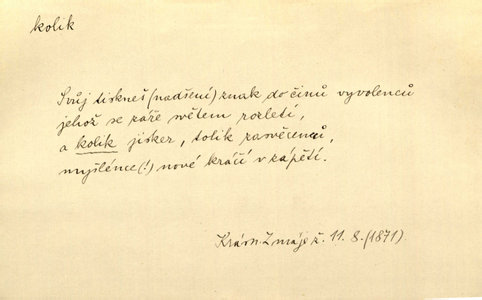 kolik
Svůj tiskneš (nadšení) znak do činů vyvolenců
jehož se záře světem rozletí,
a kolik jisker, tolik zasvěcenců,
myšlénce (!) nové kráčí v zápětí.
11. 8. (1871).